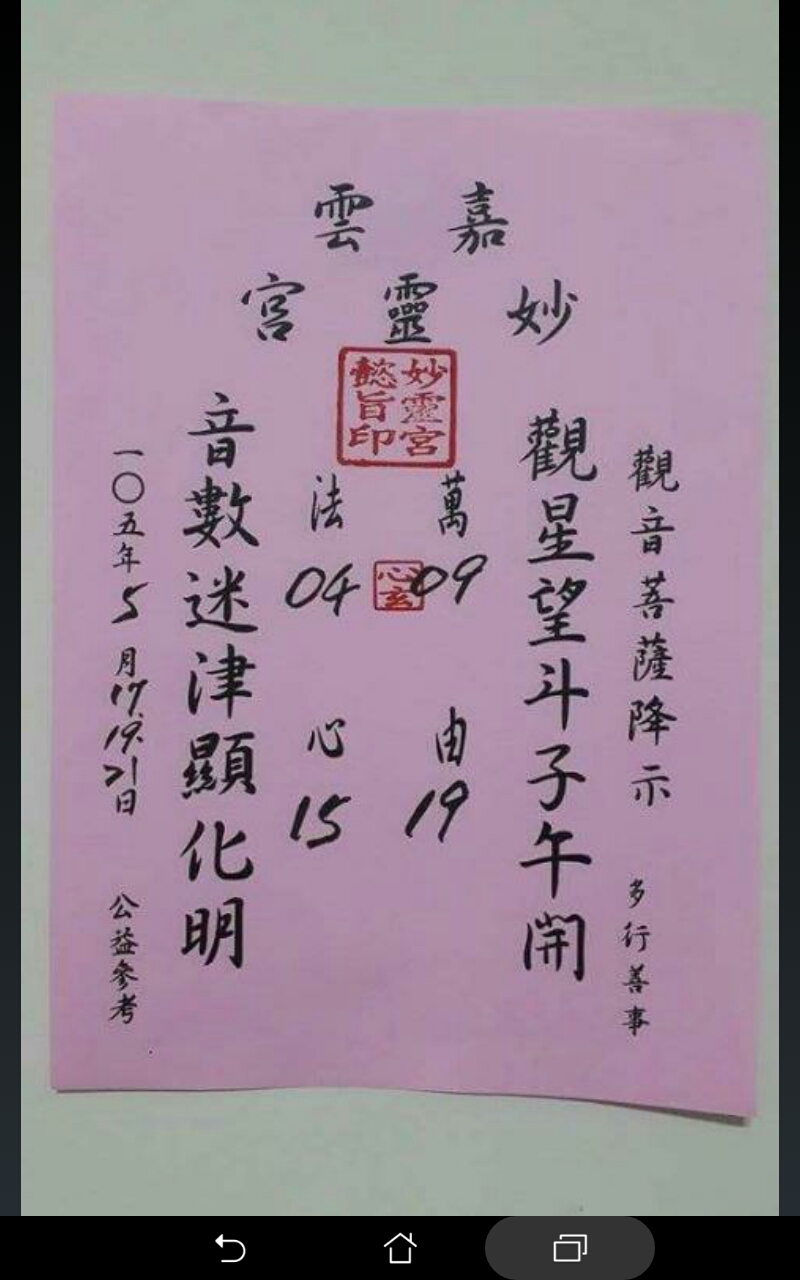 嘉雲
妙靈宮
妙靈宮
懿旨印
觀音菩薩降示 多行善事
觀星望斗子午開
萬 09 由 19
心玄
法 04 心 15
音數迷津顯化明
一〇五年5月17.19.21日 公益參考